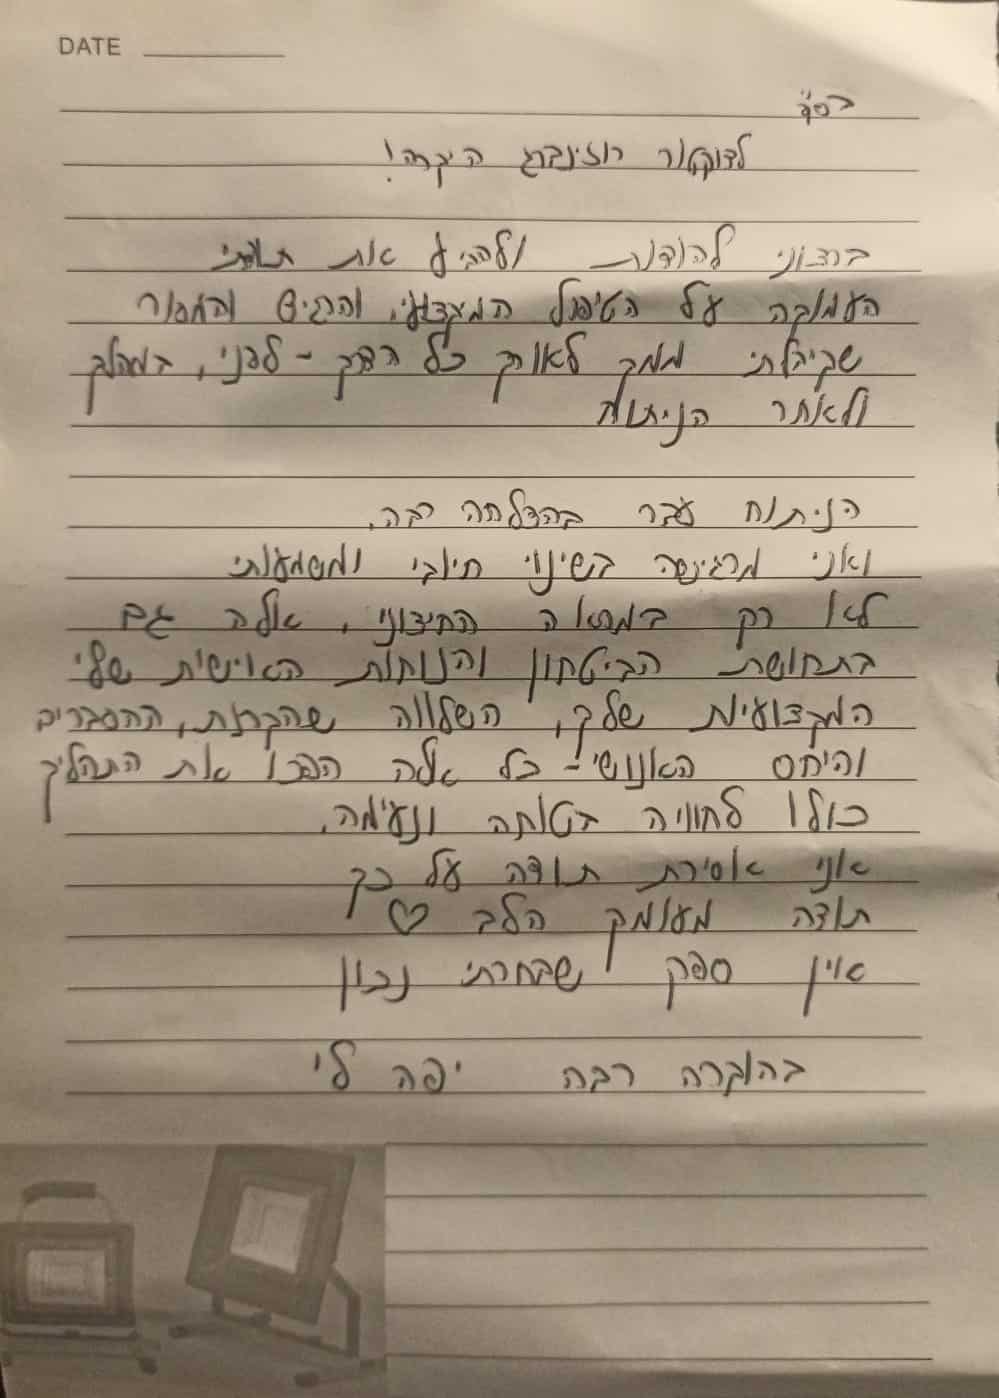 DATE
בס"ד
לדוקטור רוזנברג היקרה!
ברצוני להודות ולהביע את תודתי
העמוקה על הטיפול המקצועי, והרגיש והמסור
שקיבלתי ממך לאורך כל הדרך - לפני, במהלך
ולאחר הניתוח
הניתוח עבר בהצלחה רבה,
ואני מרגישה בשינוי חיובי ומשמעותי
לא רק במראה החיצוני, אלה גם
בתחושת הביטחון והנוחות האישית שלי
המקצועיות שלך, השלווה שהקרנת, ההסברים
והיחס האנושי - כל אלה הפכו את התהליך
כולו לחוויה בטוחה ונעימה.
אני אסירת תודה על כך
תודה מעומק הלב ♡
אין ספק שבחרתי נכון
בהוקרה רבה יפה לי